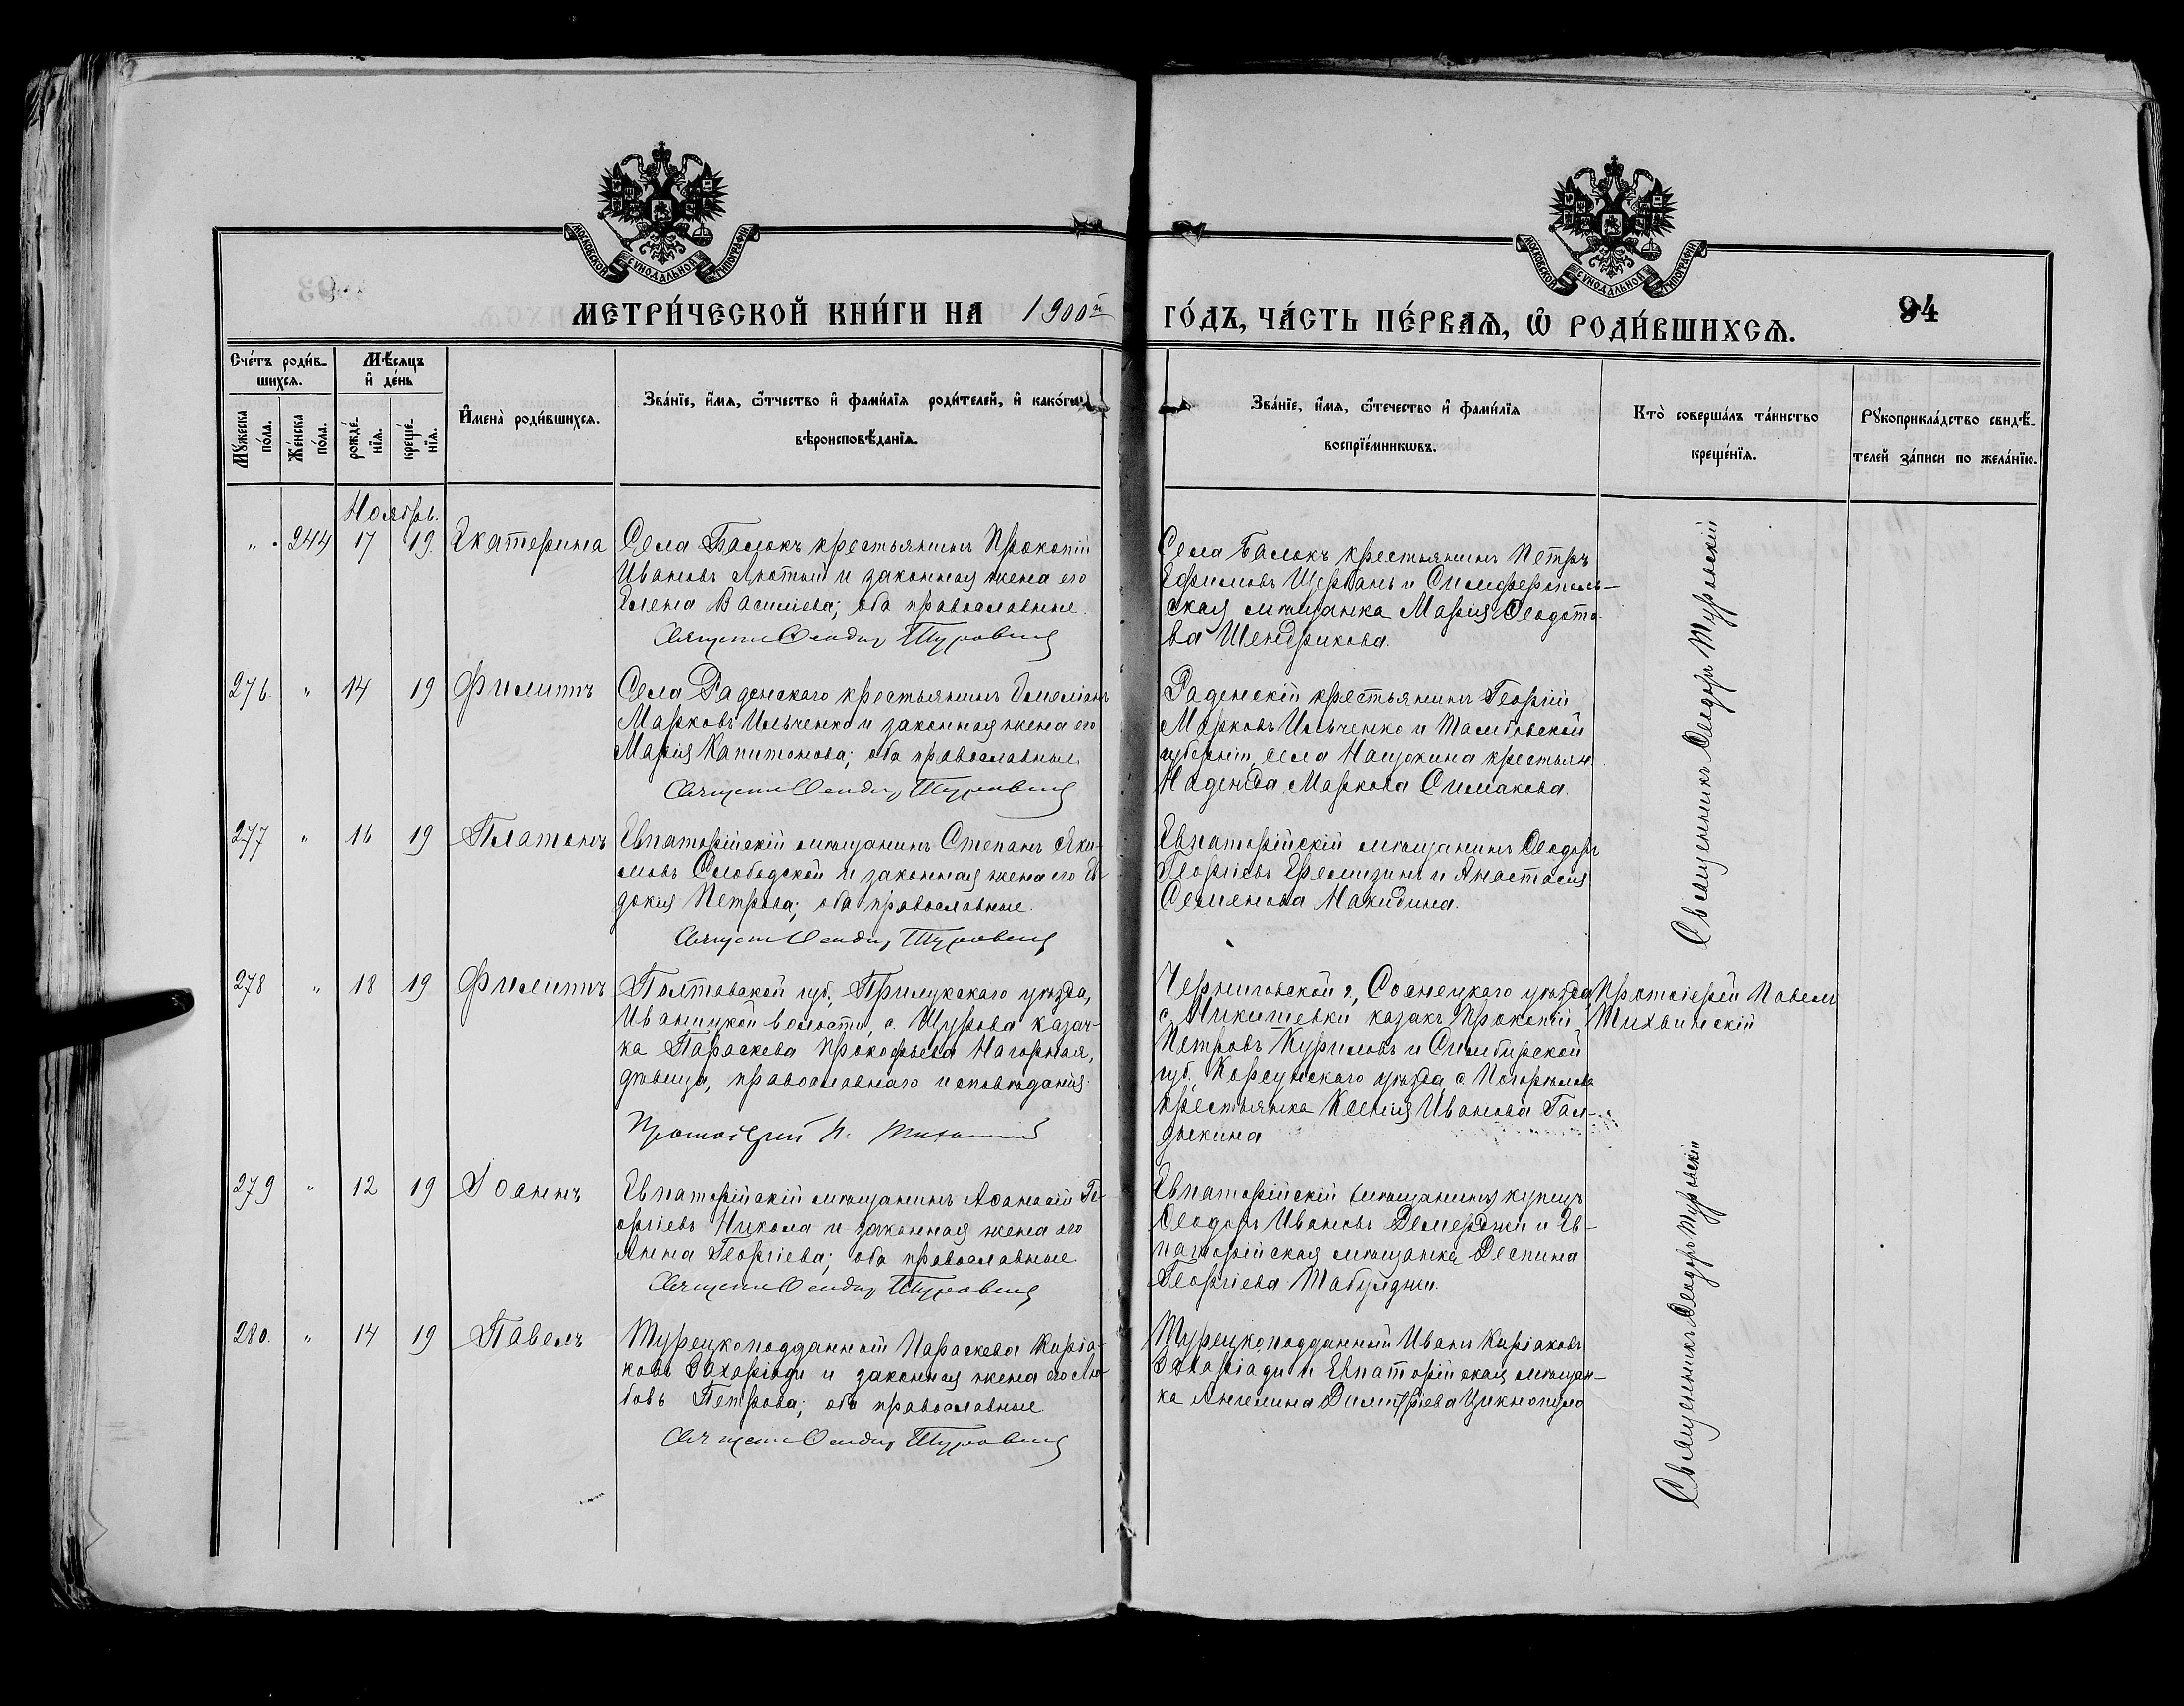 МОСКОВСКОЙ СУНОДАЛЬНОЙ ТИПОГРАФІИ
МОСКОВСКОЙ СУНОДАЛЬНОЙ ТИПОГРАФІИ
МЕТРИ́ЧЕСКОЙ КНИ́ГИ НА 1900й ГО́ДЪ, ЧА́СТЬ ПЕ́РВАѦ, Ѽ РОДИ́ВШИХСѦ.
94
Сче́тъ роди́в-
шихсѧ.
Мѣ́сѧцъ
и҆ де́нь
Мꙋ́жеска
по́ла.
Же́нска
по́ла.
рожде́-
нїѧ.
креще́-
нїѧ.
И҆мена̀ роди́вшихсѧ.
Зва́нїе, и҆́мѧ, ѻ҆́тчество и҆ фами́лїѧ роди́телей, и҆ како́гѡ
вѣроисповѣ́данїѧ.
Зва́нїе, и҆́мѧ, ѻ҆́течество и҆ фами́лїѧ
воспрїе́мникѡвъ.
Кто̀ соверша́лъ та́инство
креще́нїѧ.
Рꙋкоприкла́дство свидѣ́-
телей за́писи по жела́нїю.
Ноябрь.
" 244 17 19. Екатерина
Села Балокъ крестьянинъ Прокопій
Ивановъ Лютый и законная жена его
Елена Васильева; оба православные.
Священ Феодор Туровскій
Села Балокъ крестьянинъ Петръ
Ефимовъ Щербань и Симферополь-
ская мѣщанка Марія Ѳеодото-
ва Шендрикова.
276. " 14 19 Филиппъ
Села Раденскаго крестьянинъ Емеліанъ
Марковъ Ильченко и законная жена его
Марія Капитонова; оба православные.
Священ Феодор Туровскій
Раденскій крестьянинъ Георгій
Марковъ Ильченко и Тамбовской
губерніи, села Нащокина крестьян.
Надежда Маркова Симакова.
277 " 16 19 Платонъ
Евпаторійскій мѣщанинъ Степанъ Яки-
мовъ Слободской и законная жена его Ев-
докія Петрова; оба православные.
Священ Феодор Туровскій
Евпаторійскій мѣщанинъ Ѳеодоръ
Георгіевъ Еремизинъ и Анастасія
Семенова Макидина.
Священникъ Ѳеодоръ Туровскій
278 " 18 19 Филиппъ
Полтавской губ., Прилукскаго уѣзда,
Иваницкой волости, с. Щурова казач-
ка Параскева Прокофьева Нагорная,
дѣвица, православнаго исповѣданія.
Протоіерей П. Тихвинскій
Черниговской г., Сосницкаго уѣзда,
с. Никишевки казакъ Прокопій
Петровъ Куриловъ и Симбирской
губ., Корсунскаго уѣзда, с. Погорѣлова
крестьянка Ксенія Иванова Гал-
дыкина
Протоіерей Павелъ
Тихвинскій
279 " 12 19 Іоаннъ
Евпаторійскій мѣщанинъ Аѳанасій Ге-
оргіевъ Никола и законная жена его
Анна Георгіева; оба православные.
Священ Феодор Туровскій
Евпаторійскій (мѣщанинъ) купецъ
Ѳеодоръ Ивановъ Демерджи и Ев-
паторійская мѣщанка Деспина
Георгіева Табулджи.
280. " 14 19 Павелъ
Турецкоподданный Параскева Киріа-
ковъ Захаріади и законная жена его Лю-
бовь Петрова; оба православные
Священ Феодор Туровскій
Турецкоподданный Иванъ Киріаковъ
Захаріади и Евпаторійская мѣщан-
ка Ангелина Димитріева Цикнопуло
Священникъ Ѳеодоръ Туровскій